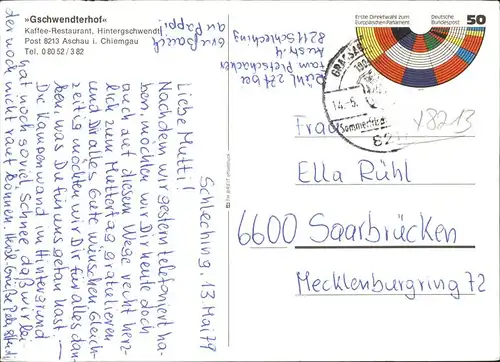 »Gschwendterhof«
Kaffee-Restaurant, Hintergschwendt
Post 8213 Aschau i. Chiemgau
Tel. 0 80 52 / 3 82
Erste Direktwahlen zum
Europäischen Parlament
Deutsche
Bundespost
50
GRASSAU
14.-5.
Sommerfrische
821
Rühl z Zt bei
8211 Schleching
Schleching, 13. Mai 79
Liebe Mutti!
Nachdem wir gestern telefoniert ha-
ben, möchten wir Dir heute doch
auch auf diesem Wege recht herz-
lich zum Muttertag gratulieren
und Dir alles Gute wünschen. Gleich-
zeitig möchten wir Dir für alles dan-
ken, was Du für uns getan hast. —
Die Kampenwand im Hintergrund
hat noch soviel Schnee, daß wir lei-
der noch nicht rauf können.
Frau
Ella Rühl
6600 Saarbrücken
Mecklenburgring 72
y8213